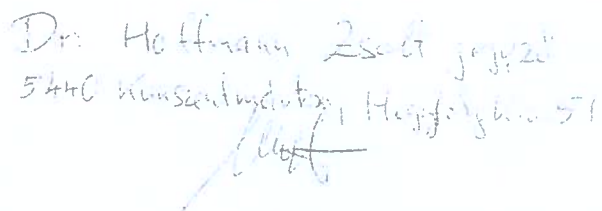 Dr. Hoffmann Zsolt jegyző
5440 Kunszentmárton, 51